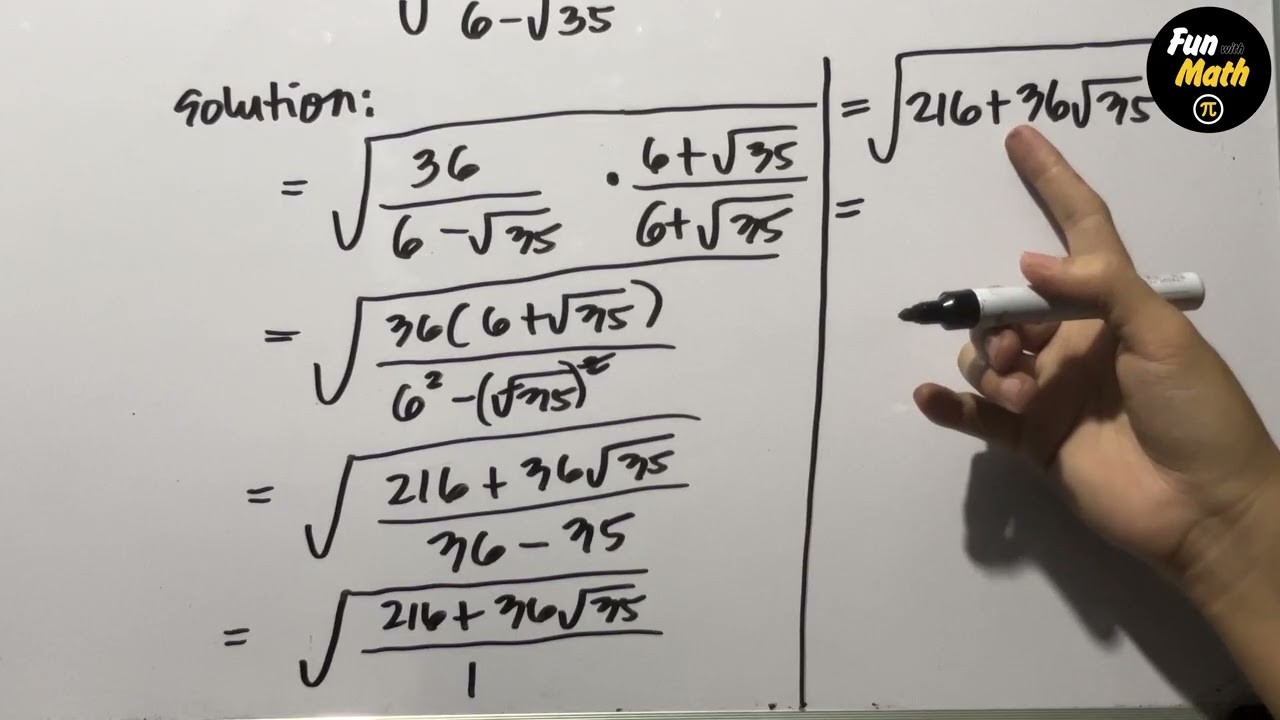 √ 6-√35
solution:
= √(36/(6-√35) · (6+√35)/(6+√35))
= √(36(6+√35)/(6²-(√35)²))
= √((216+36√35)/(36-35))
= √((216+36√35)/1)
= √(216+36√35)
=
Fun with
Math
π